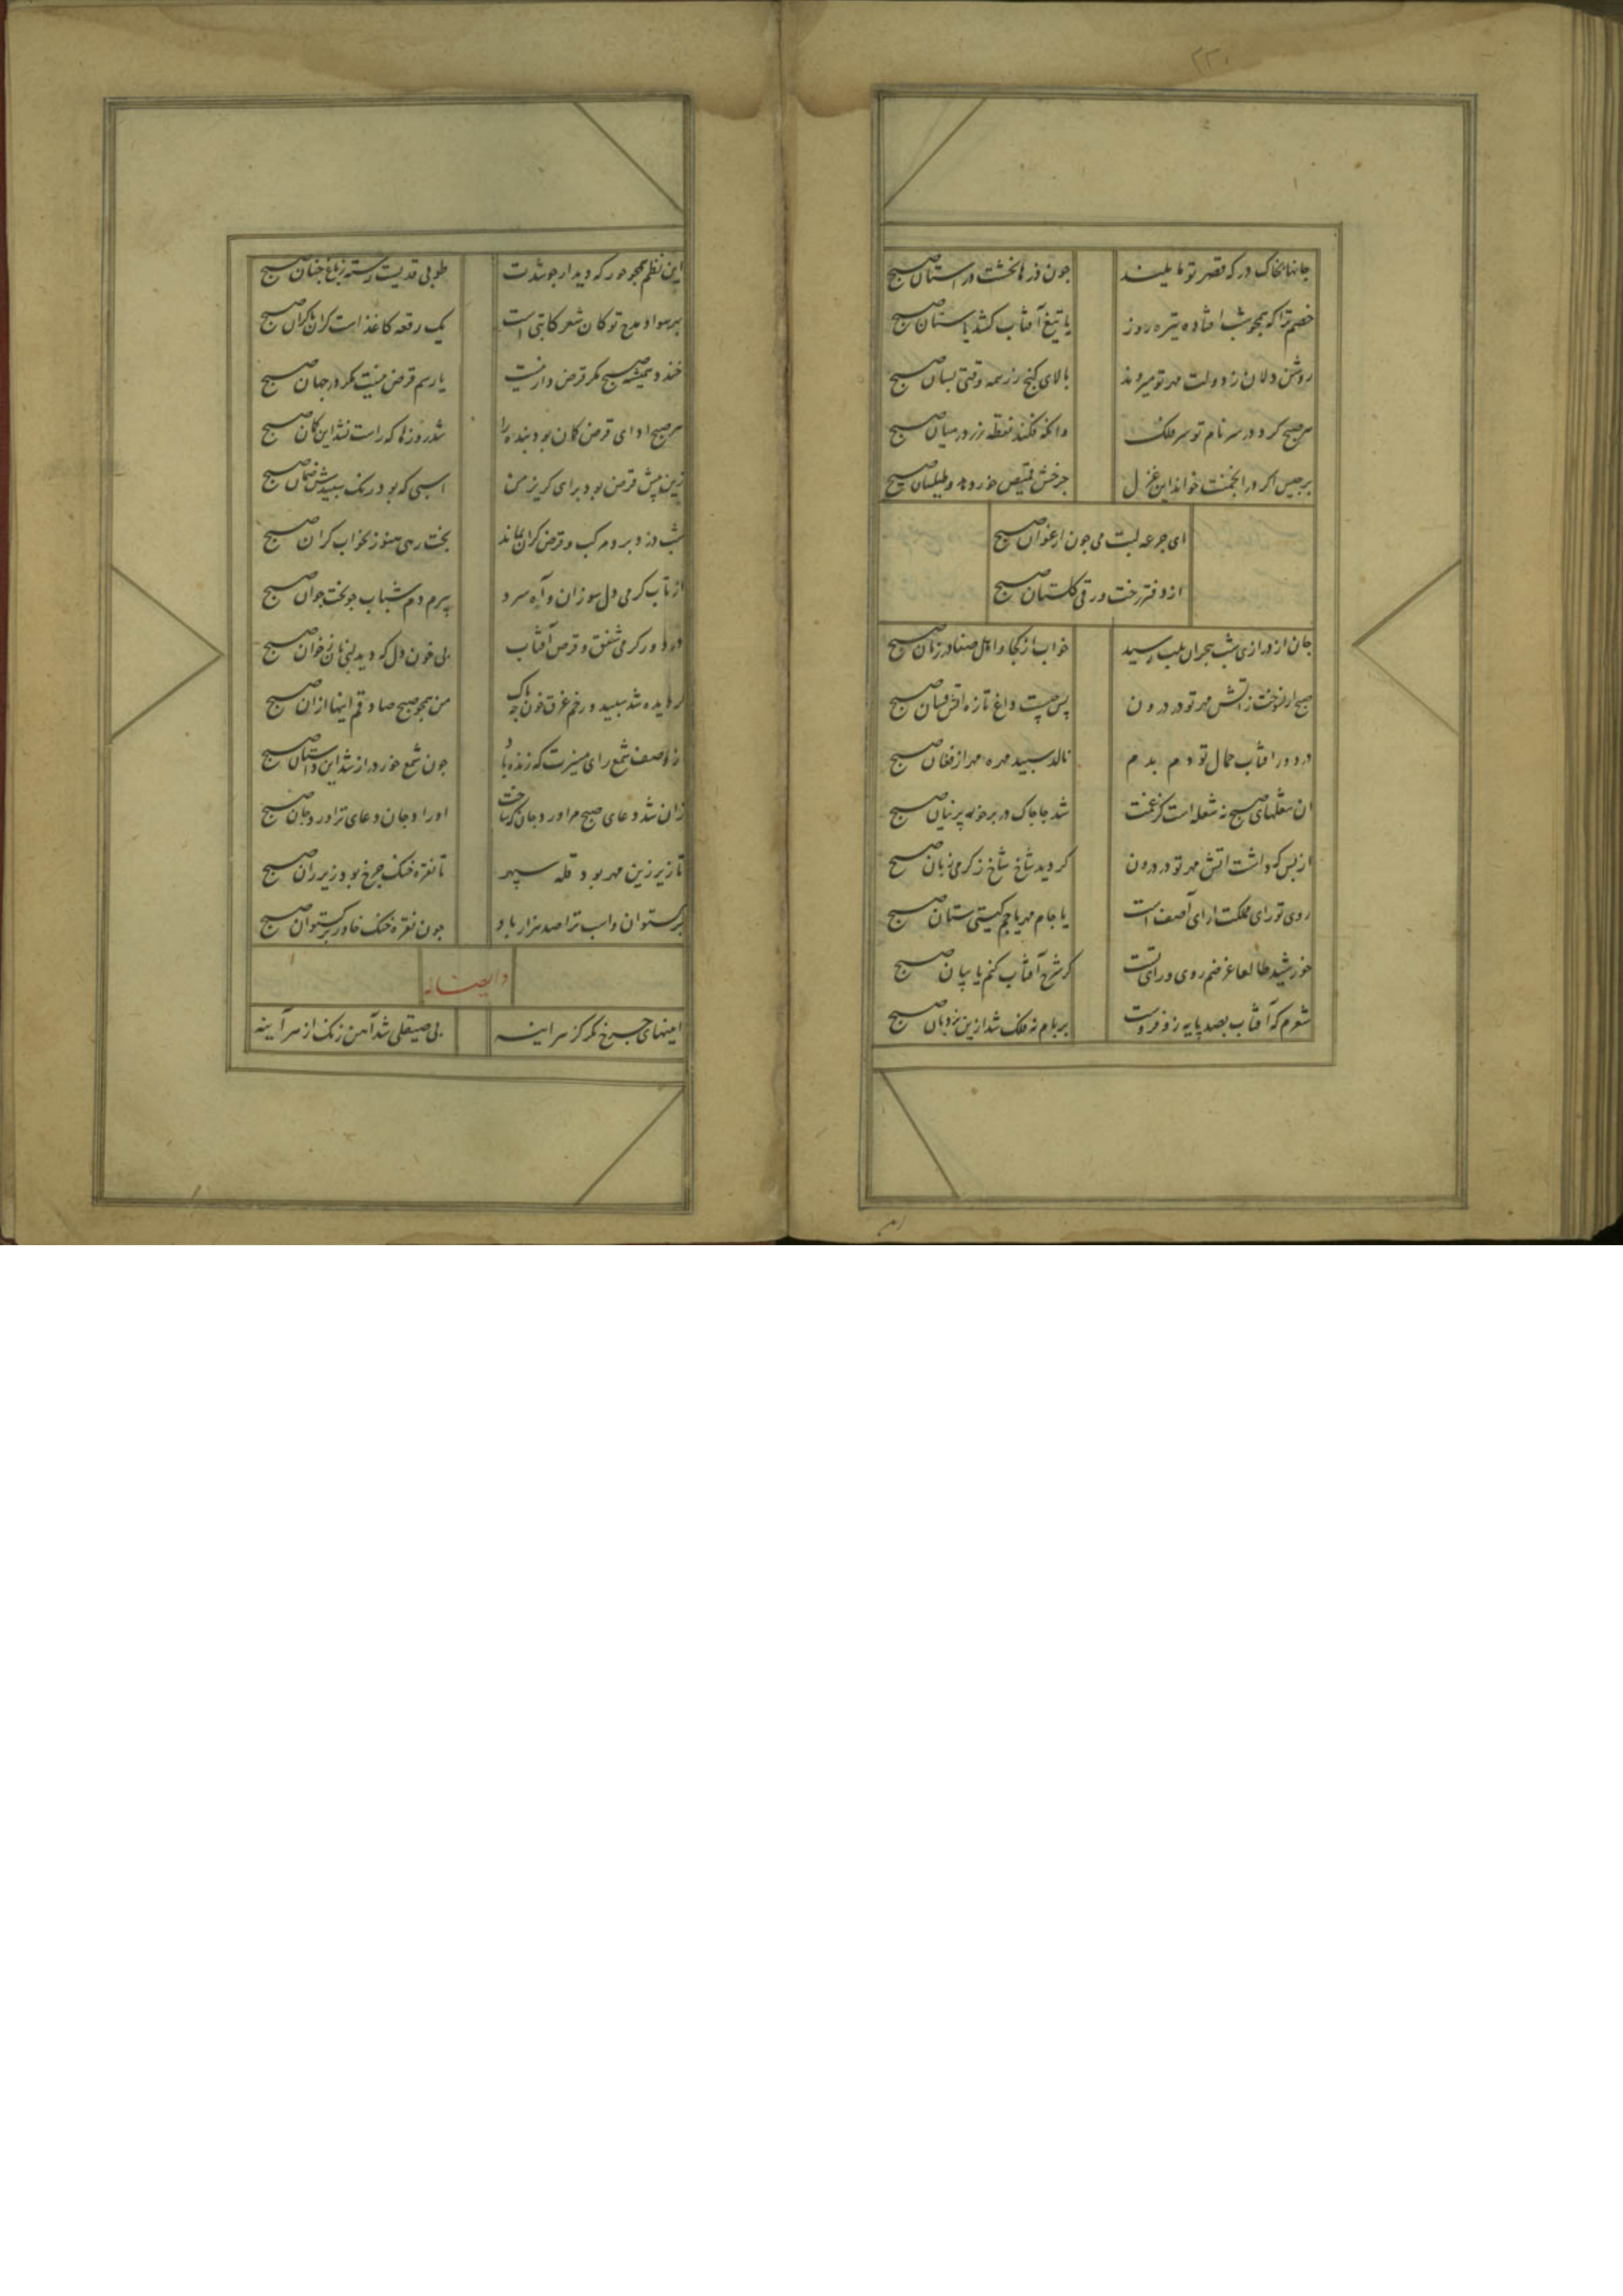 ۲۲۰
جانها بخاک درکه قصر تو مایلند
چون ذرها بخشت در آستان صبح
خصم ترا که همچو شب افتاده تیره روز
یا تیغ آفتاب کشد یا سنان صبح
روشن دلان ز دولت مهر تو میروند
بالای کنج زر همه وقتی بسان صبح
هر صبح کرد در سر نام تو سر فلک
وانکه فکند نقطه زر در میان صبح
برجیس اکر در انجمنت خواند این غزل
چرخش قمیص خور دهد و طیلسان صبح
ای جرعه لبت می چون ارغوان صبح
از دفتر رخت ورقی کلستان صبح
جان از درازی شب هجران بلب رسید
خواب از کجا و اهل صفا در زمان صبح
صبح ار نسوخت ز آتش مهر تو در درون
پس چیست داغ تازه آتش فشان صبح
در دور آفتاب جمال تو دم بدم
نالد سپید مهره مهر از فغان صبح
آن شعلهای صبح نه شعله است کز غمت
شد چاچاک در بر خور پرنیان صبح
از بس که داشت آتش مهر تو در درون
کردید شاخ شاخ ز کرمی زبان صبح
روی تو رای مملکت ارای آصف است
یا جام مهر یا جم کیتی ستان صبح
خورشید طالعا غرضم روی و رای تست
کر شرح آفتاب کنم یا بیان صبح
شعرم که آفتاب بصد پایه زو فروست
بر بام نه فلک شد ازین نردبان صبح
این نظم همچو حور که دیدار جو شدت
طوبی قدیست رسته ز باغ جنان صبح
بهر سواد مدح تو کان شعر کاتبی است
یک رقعه کاغذ است کران تا کران صبح
خندد همیشه صبح مکر قرض دار نیست
یا رسم قرض نیست مکر در جهان صبح
هر صبح ادای قرض کمان بود بنده را
شد روزها که راست نشد این کمان صبح
زین پیش قرض بود برای کریز من
اسپی که بود رنک سپیدش ضمان صبح
شب دزد برد مرکب و قرض کران بماند
بخت رهی هنوز بخواب کران صبح
از تاب کرمی دل سوزان و آه سرد
پیرم دم شباب چو بخت جوان صبح
در دور کرمی شفق و قرص آفتاب
بی خون دل که دید لبی نان ز خوان صبح
کر دیده شد سپید و رخم غرق خون چه باک
من همچو صبح صادقم اینها از آن صبح
در وصف شمع رای منیرت که زنده باد
چون شمع خور دراز شد این داستان صبح
زان شد دعای صبح مرا ورد جان که ساخت
اوراد جان دعای ترا ورد جان صبح
تا زیر زین مهر بود قله سپهر
تا نقره خنک چرخ بود زیر ران صبح
برکستوان داسب ترا صد هزار باد
چون نقره خنک خاور و برکستوان صبح
وایضا له
امینهای چرخ نکر کز سر آینه
بی صیقلی شد آهن زنک از سر آینه